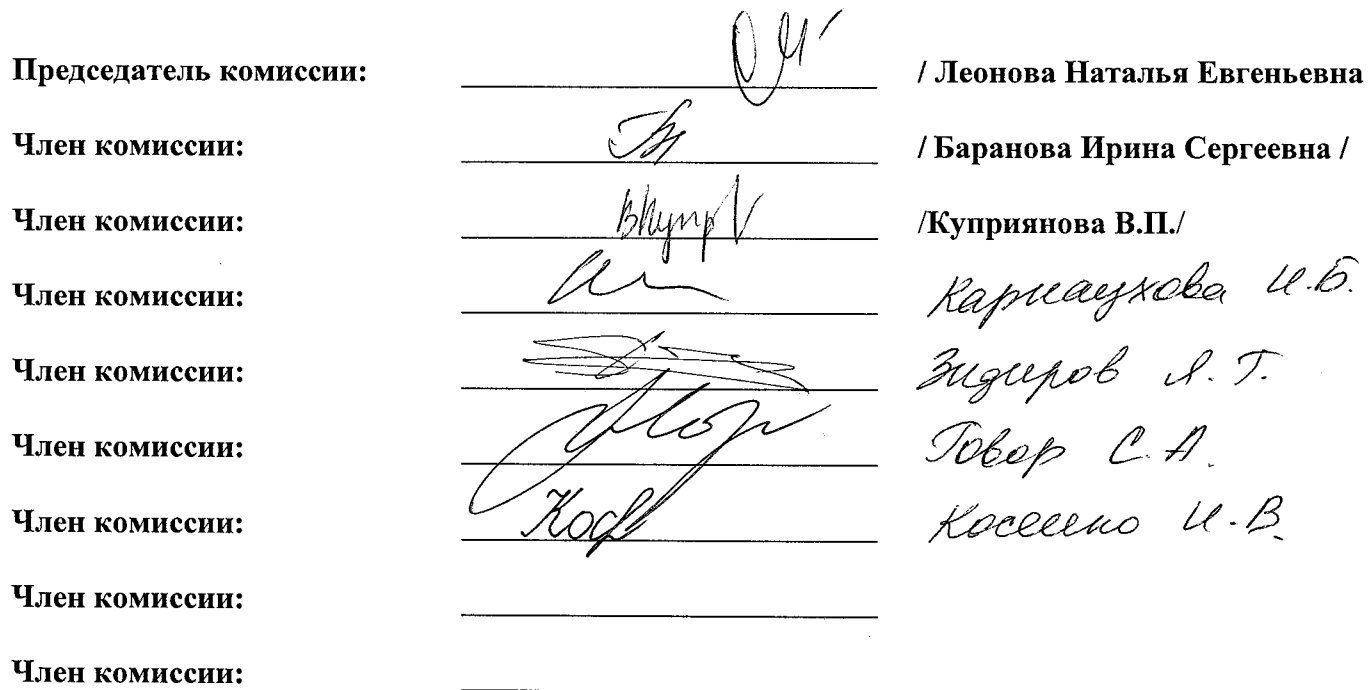 Председатель комиссии: / Леонова Наталья Евгеньевна
Член комиссии: / Баранова Ирина Сергеевна /
Член комиссии: /Куприянова В.П./
Член комиссии: Карнаухова И.Б.
Член комиссии: Зидиров Я.Т.
Член комиссии: Говор С.А.
Член комиссии: И.В.
Член комиссии:
Член комиссии: